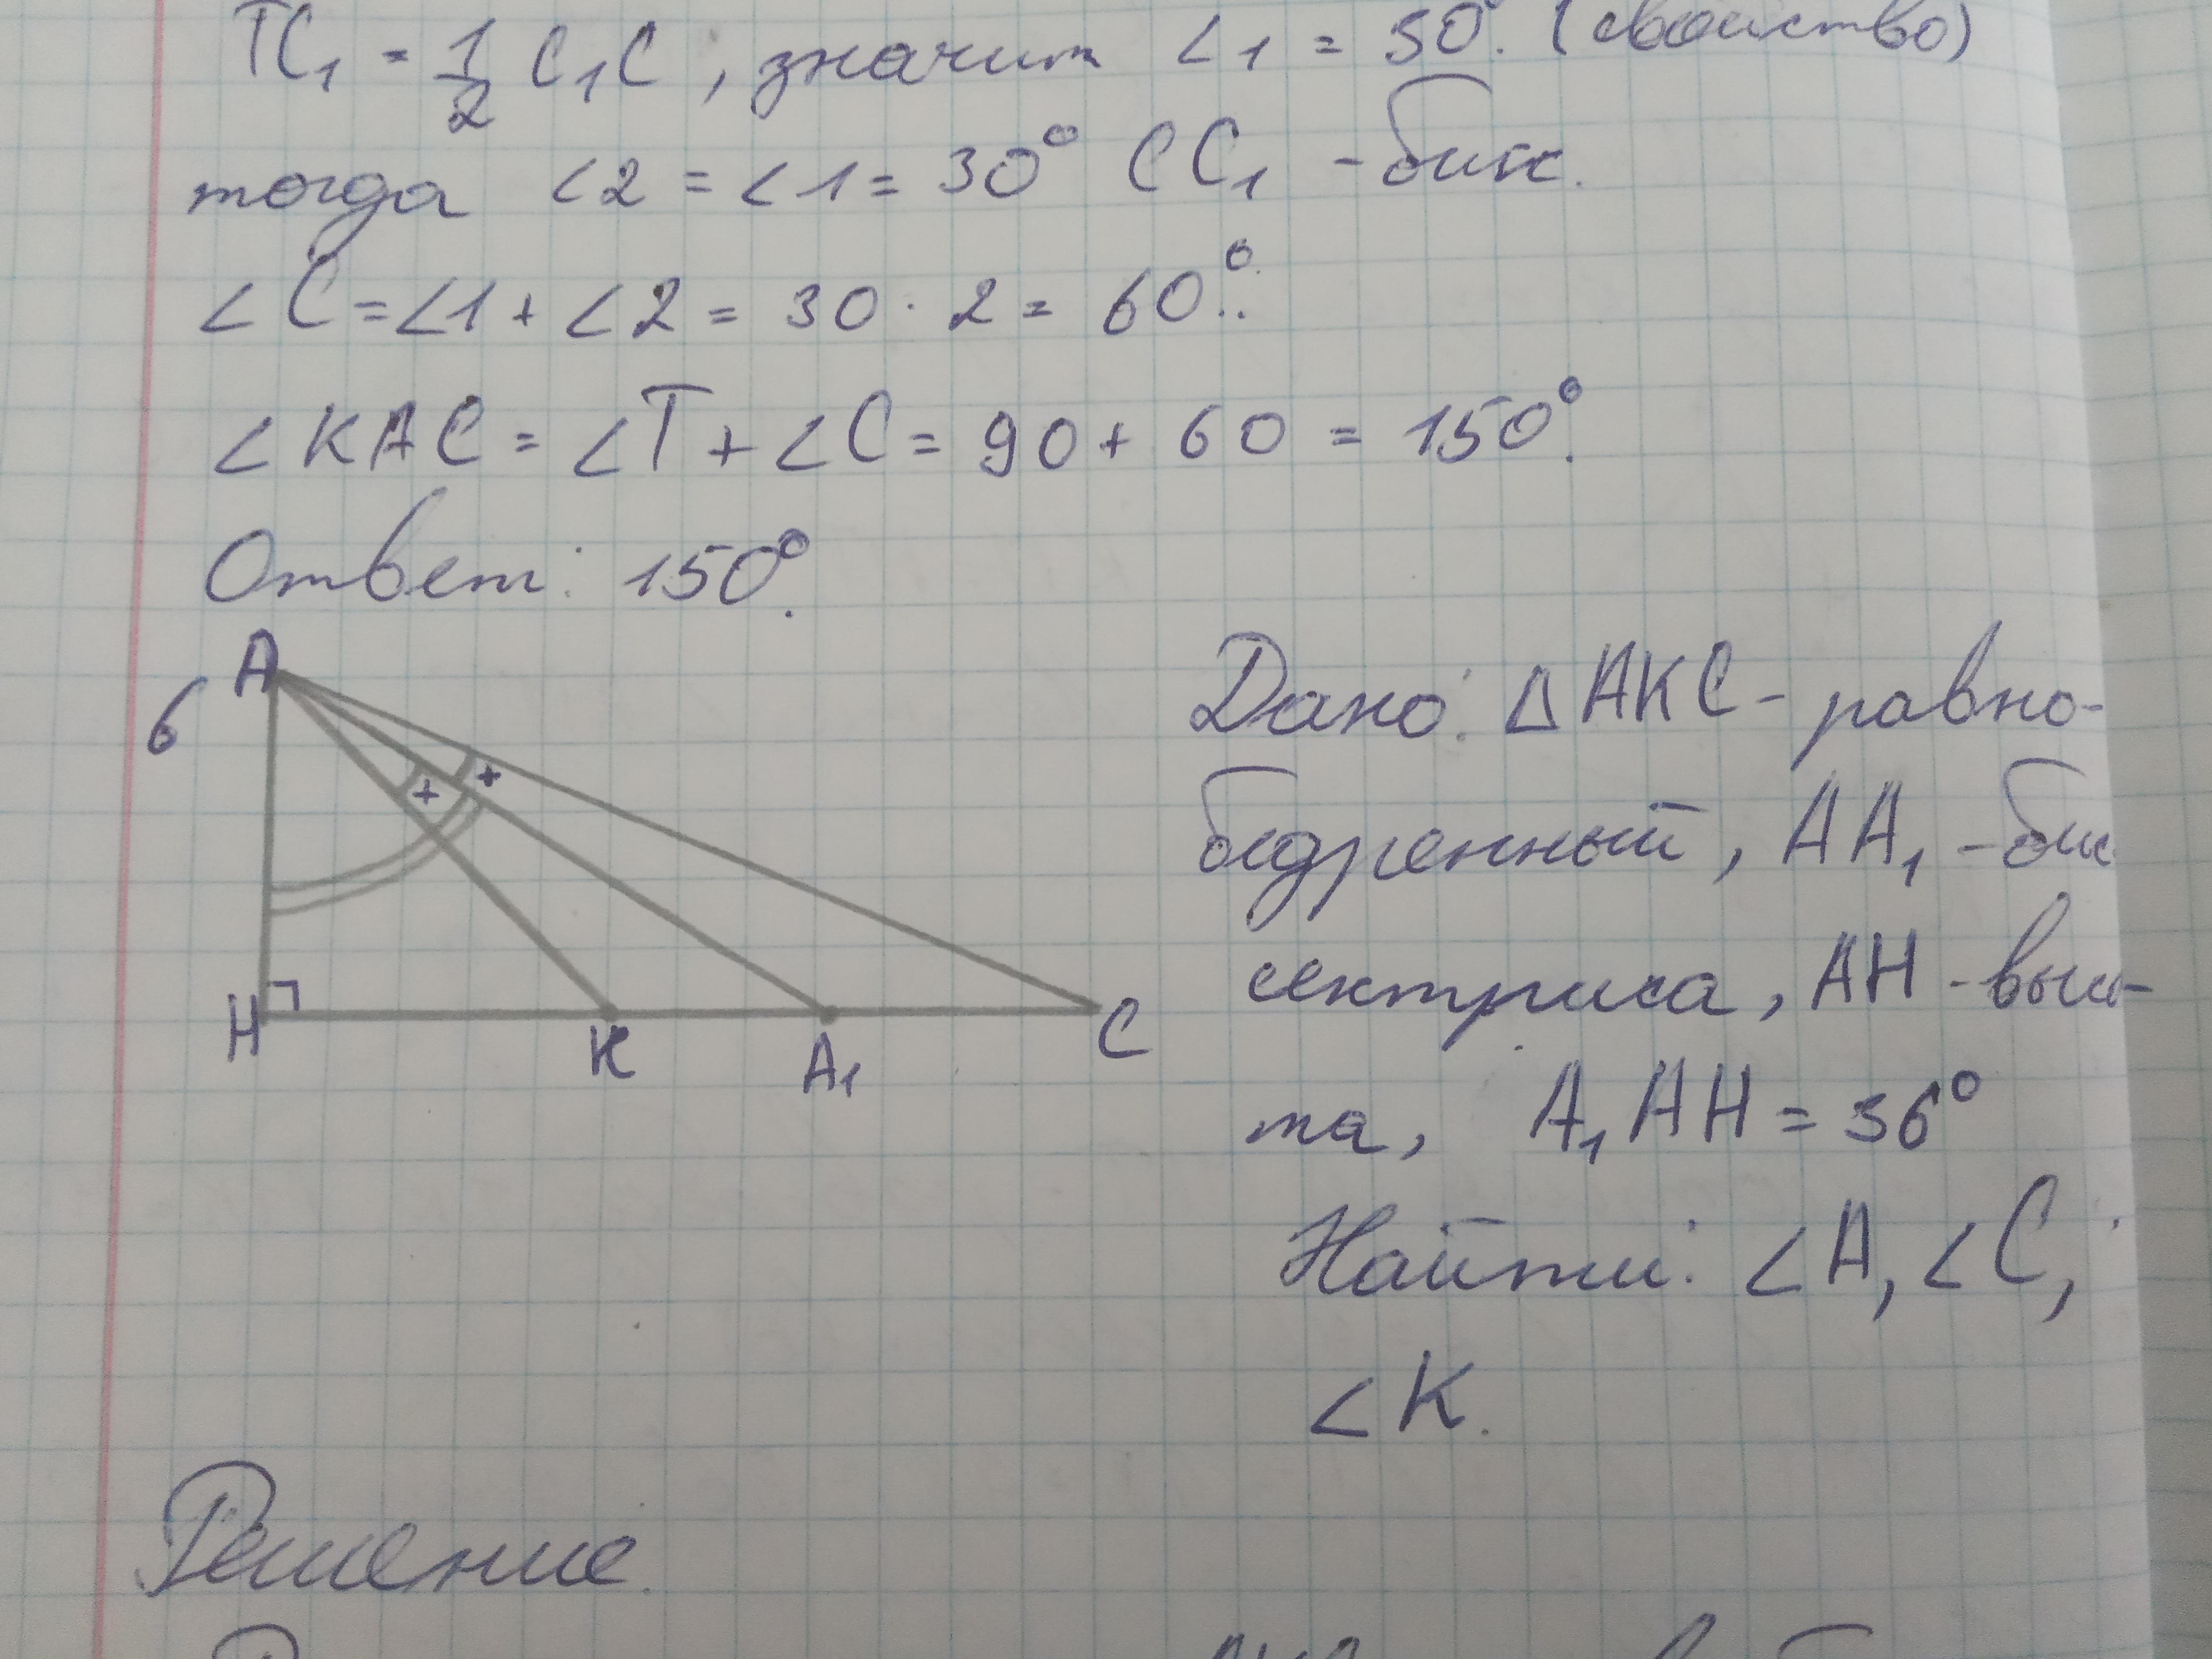 TC₁ = 1/2 C₁C, значит ∠1 = 30°. (свойство)
тогда ∠2 = ∠1 = 30° CC₁ - бисс.
∠C = ∠1 + ∠2 = 30 · 2 = 60°.
∠KAC = ∠T + ∠C = 90 + 60 = 150°.
Ответ: 150°.
6
A
H
K
A₁
C
Дано: △AKC - равно-
бедренный, AA₁ - бис
сектриса, AH - высо-
та, A₁AH = 36°
Найти: ∠A, ∠C,
∠K.
Решение.